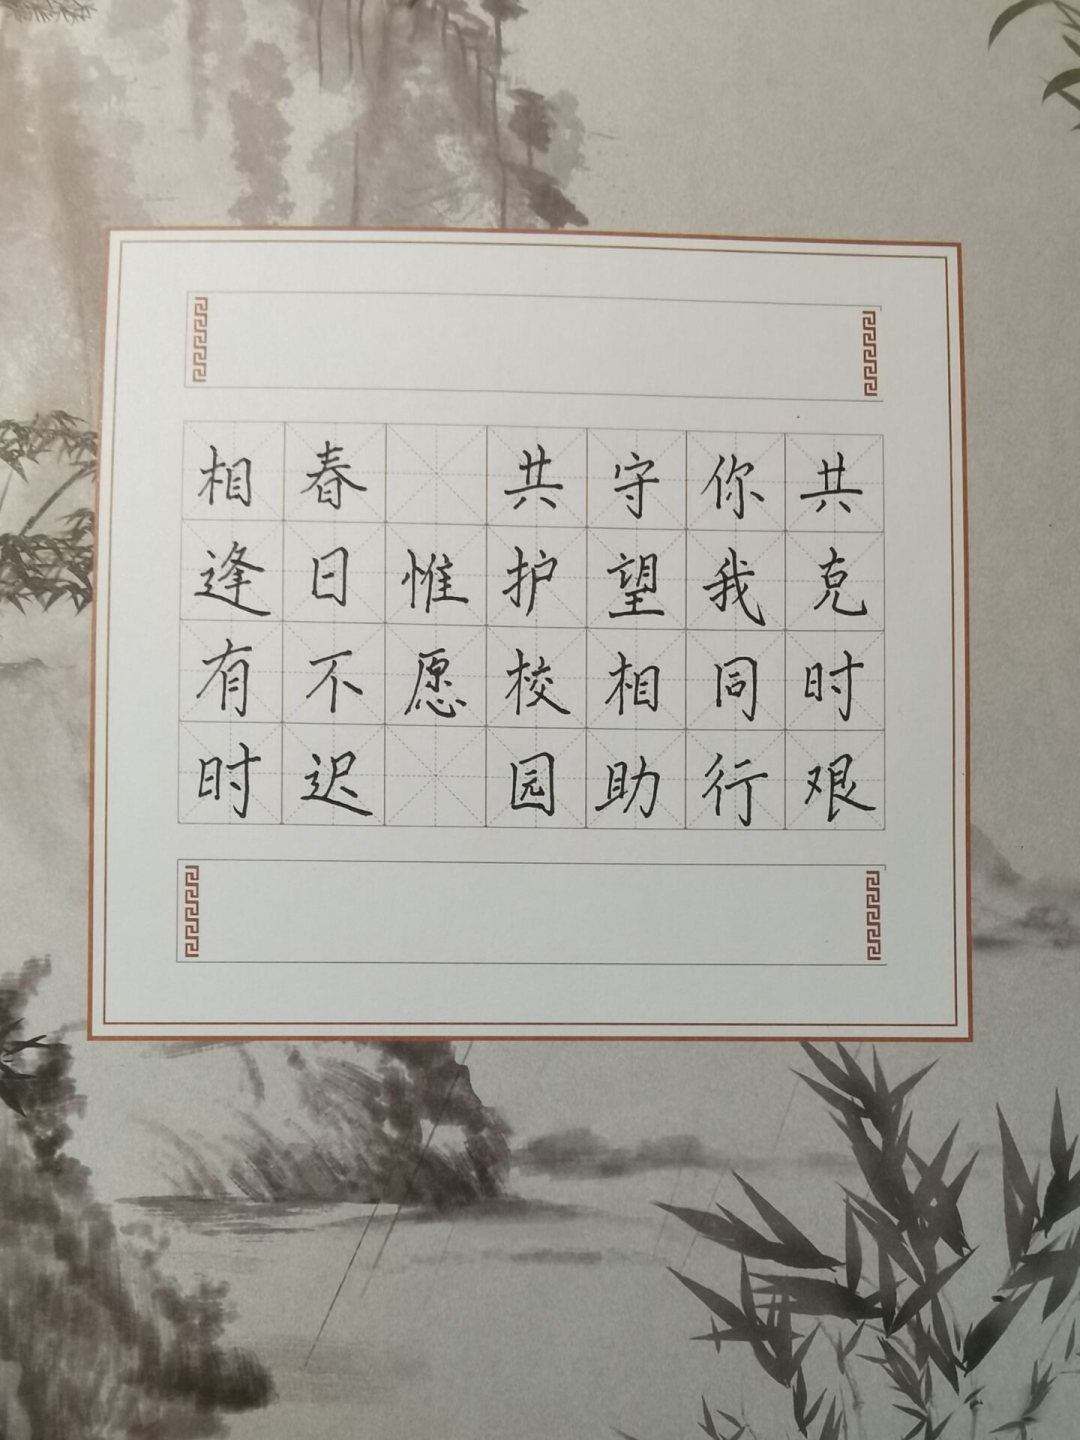 共克时艰
你我同行
守望相助
共护校园
惟愿
春日不迟
相逢有时